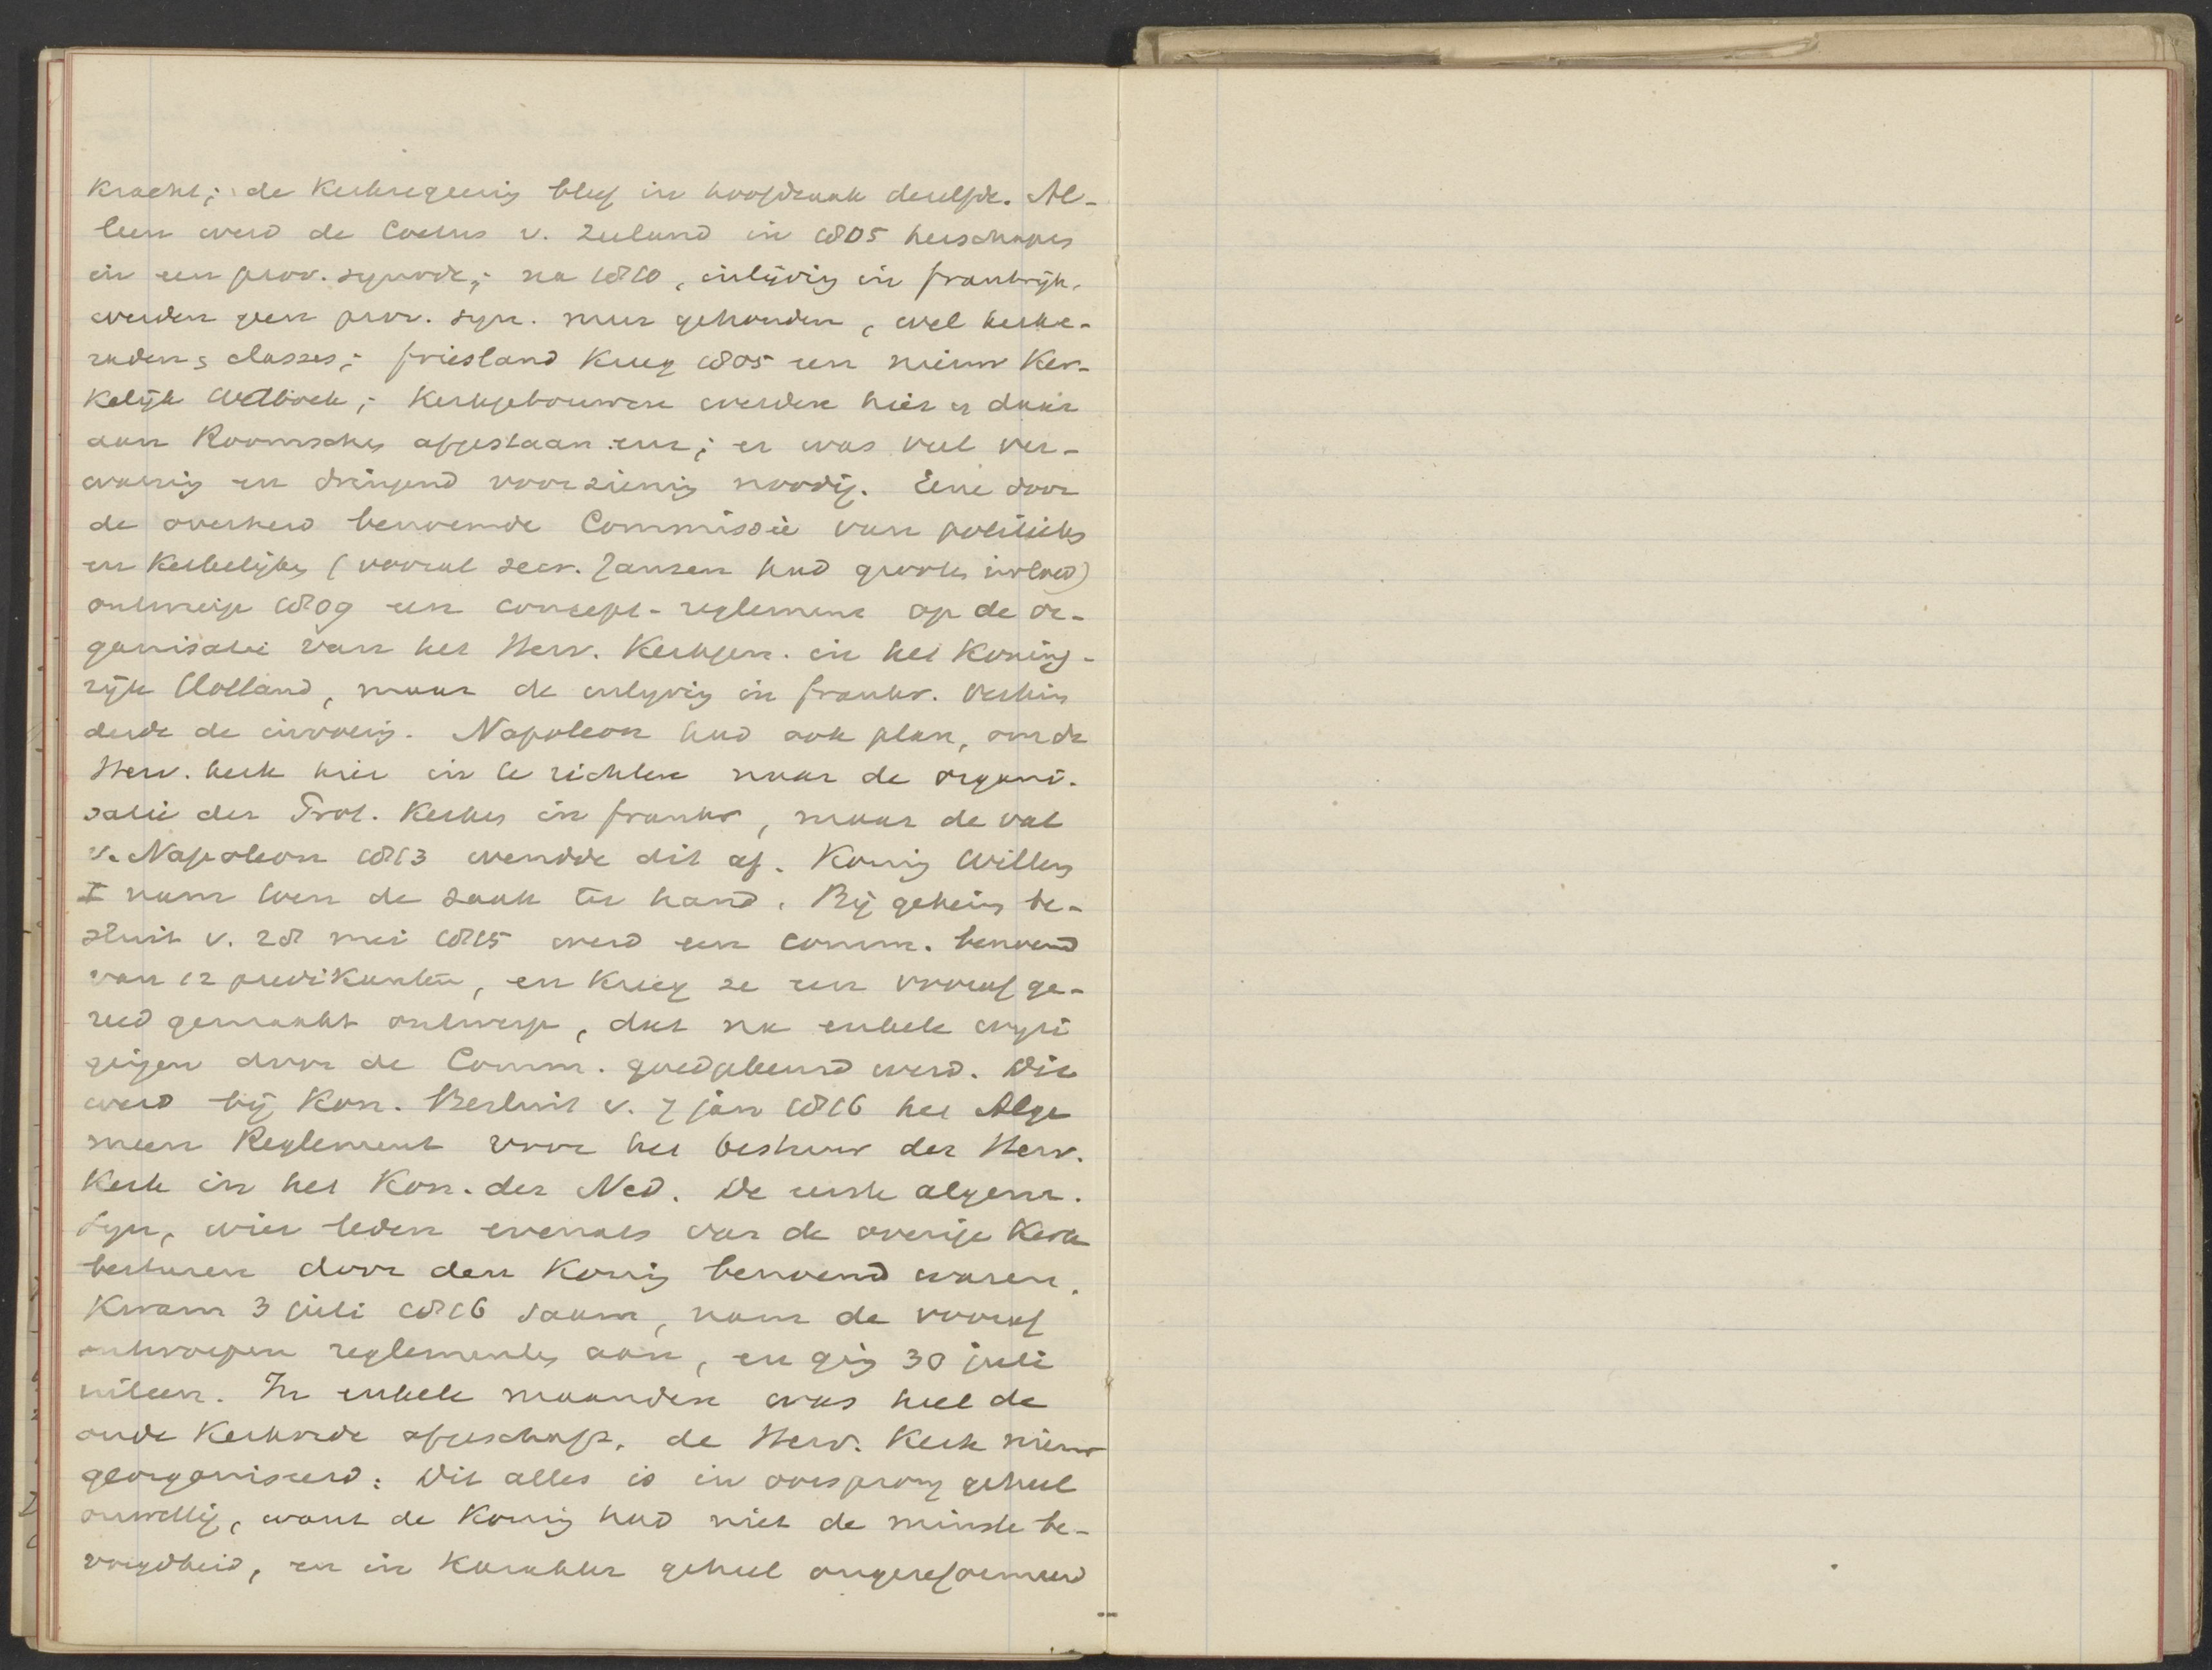 kracht; de kerkregeering bleef in hoofdzaak dezelfde. Al-
leen werd de Coetus v. Zeeland in 1805 herschapen
in een prov. synode; na 1810, inlijving in frankrijk,
werden geen prov. syn. meer gehouden, wel kerke-
raden, classes; friesland kreeg 1805 een nieuw ker-
kelijk wetboek; kerkgebouwen werden hier en daar
aan Roomschen afgestaan enz; er was veel ver-
warring en dringend voorziening noodig. Eene door
de overheid benoemde Commissie van politieke
en kerkelijke (vooral secr. Janssen had grooten invloed)
ontwierp 1809 een concept-reglement op de or-
ganisatie van het Herv. Kerkgen. in het Koning-
rijk Holland, maar de inlijving in frankr. verhin
derde de invoering. Napoleon had ook plan, om de
Herv. kerk hier in te richten naar de organi-
satie der Prot. kerken in frankr, maar de val
v. Napoleon 1813 wendde dit af. Koning Willem
I nam toen de zaak ter hand. Bij geheim be-
sluit v. 28 mei 1815 werd een comm. benoemd
van 12 predikanten, en kreeg ze een vooraf ge-
reed gemaakt ontwerp, dat na enkele wijzi
gingen door de Comm. goedgekeurd werd. Dit
werd bij Kon. Besluit v. 7 jan 1816 het Alge
meen Reglement voor het bestuur der Herv.
Kerk in het Kon. der Ned. De eerste algem.
syn, wier leden evenals van de overige kerk
besturen door den Koning benoemd waren,
kwam 3 juli 1816 saam, nam de vooraf
ontworpen reglementen aan, en ging 30 juli
uiteen. In enkele maanden was heel de
oude kerkorde afgeschaft, de Herv. Kerk nieuw
georganiseerd: Dit alles is in oorsprong geheel
onwettig, want de Koning had niet de minste be-
voegdheid, en in karakter geheel ongereformeerd